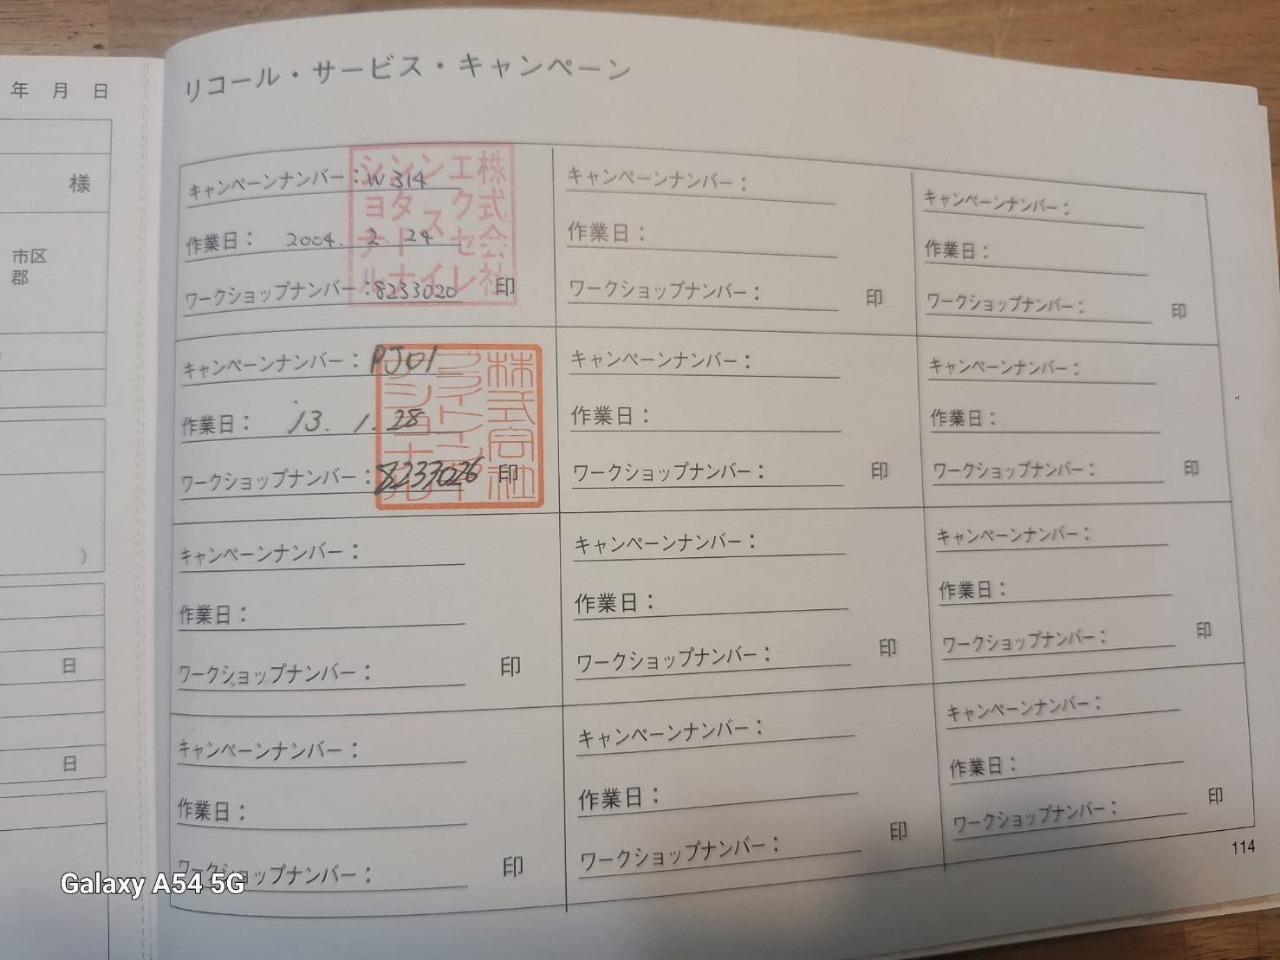 年 月 日
様
市区
郡
)
日
日
リコール・サービス・キャンペーン
キャンペーンナンバー：W314
作業日： 2004. 2. 24
ワークショップナンバー：8233020 印
株式会社
エクセレイ
ンスト
シンタナ
ショナル
キャンペーンナンバー：
作業日：
ワークショップナンバー： 印
キャンペーンナンバー：
作業日：
ワークショップナンバー： 印
キャンペーンナンバー：PJ01
作業日： 13. 1. 28
ワークショップナンバー：8233026 印
株式会社
キャンペーンナンバー：
作業日：
ワークショップナンバー： 印
キャンペーンナンバー：
作業日：
ワークショップナンバー： 印
キャンペーンナンバー：
作業日：
ワークショップナンバー： 印
キャンペーンナンバー：
作業日：
ワークショップナンバー： 印
キャンペーンナンバー：
作業日：
ワークショップナンバー： 印
キャンペーンナンバー：
作業日：
ワークショップナンバー： 印
キャンペーンナンバー：
作業日：
ワークショップナンバー： 印
キャンペーンナンバー：
作業日：
ワークショップナンバー： 印
114
Galaxy A54 5G